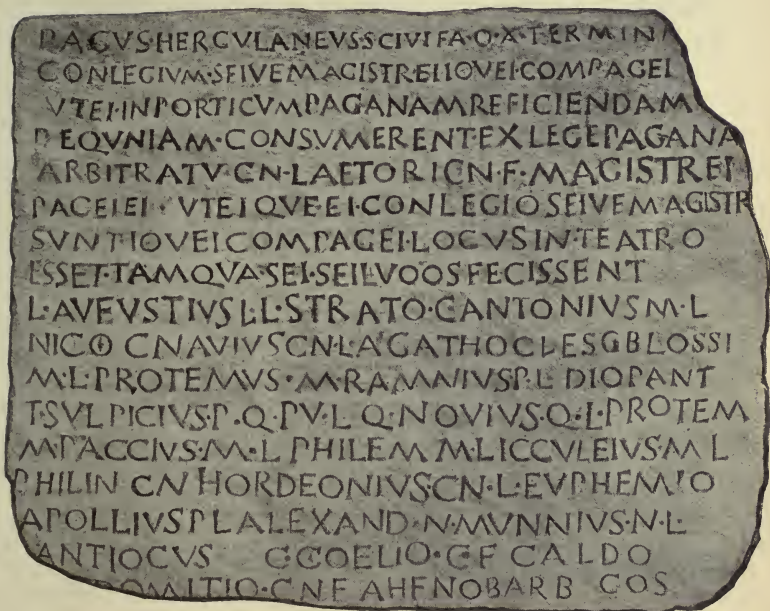 PAGVS·HERCVLANEVS·SCIVIT·A·D·X·TERMINA
CONLEGIVM·SEIVE MAGISTREI·IOVEI·COMPAGEI
VTEI·IN PORTICVM PAGANAM REFICIENDAM
PEQVNIAM·CONSVMERENT·EX LEGE PAGANA
ARBITRATV·CN·LAETORI CN·F·MAGISTREI
PAGEIEI·VTEIQVE·EI·CONLEGIO SEIVE MAGISTR
SVNT IOVEI COMPAGEI·LOCVS IN·TEATRO
ESSET·TAMQVA·SEI·SEI LVDOS FECISSENT
L·AVFVSTIVS L·L·STRATO·C·ANTONIVS M·L
NICO CN AVIVS CN·L·AGATHOCLES C BLOSSI
M·L·PROTEMVS·M·RAMNIVS·P·L DIOPANT
T·SVLPICIVS·P·Q·PV·L Q·NOVIVS·Q·L·PROTEM
M·PACCIVS·M·L PHILEM M·LICCVLEIVS·M L
PHILIN CN HORDEONIVS·CN·L·EVPHEMIO
A POLLIVS P L ALEXAND·N·MVNNIVS·N·L
ANTIOCVS C COELIO·C F CALDO
DOMITIO·CN F AHENOBARB COS